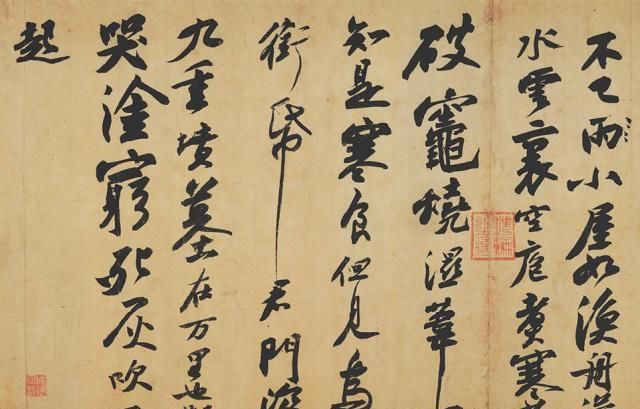 不已雨小屋如漁舟
水雲裏空庖煮寒
破竈燒濕葦
知是寒食但見烏
銜帋君門深
九重墳墓在万里也
哭塗窮死灰吹
起